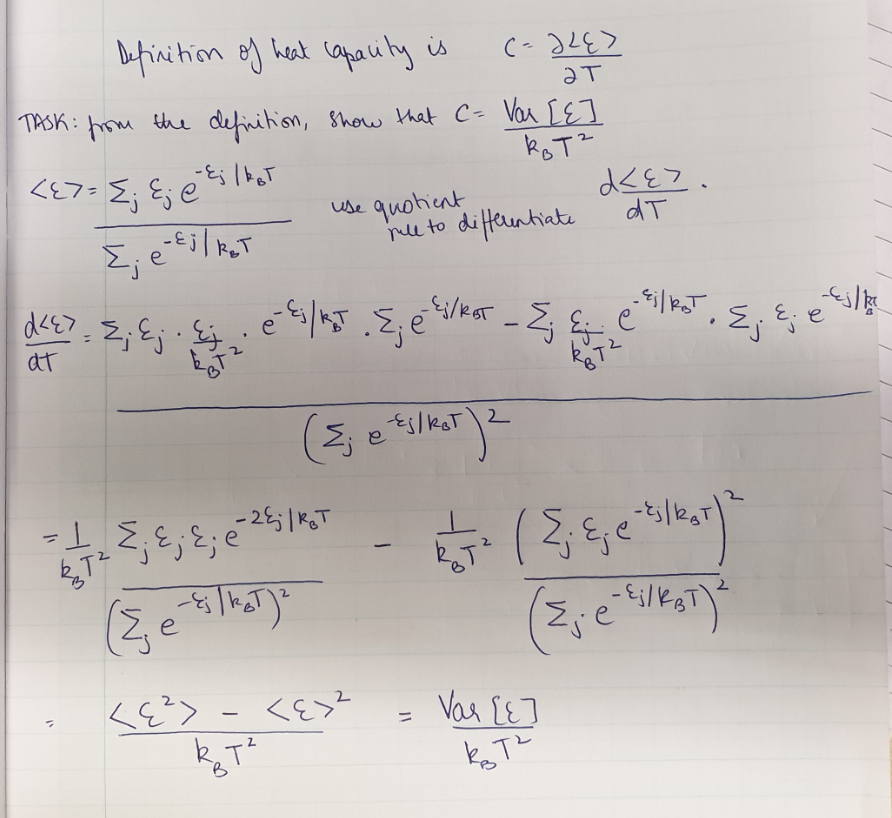 Definition of heat capacity is C = ∂<ε> / ∂T
TASK: from the definition, show that C = Var [ε] / k_B T²
<ε> = Σ_j ε_j e^{-ε_j/k_BT} / Σ_j e^{-ε_j/k_BT} use quotient rule to differentiate d<ε> / dT .
d<ε> / dT = Σ_j ε_j · ε_j / k_BT² · e^{-ε_j/k_BT} . Σ_j e^{-ε_j/k_BT} - Σ_j ε_j / k_BT² e^{-ε_j/k_BT} . Σ_j ε_j e^{-ε_j/k_B
(Σ_j e^{-ε_j/k_BT})²
= 1 / k_BT² Σ_j ε_j ε_j e^{-2ε_j/k_BT} / (Σ_j e^{-ε_j/k_BT})² - 1 / k_BT² (Σ_j ε_j e^{-ε_j/k_BT})² / (Σ_j e^{-ε_j/k_BT})²
= <ε²> - <ε>² / k_BT² = Var [ε] / k_BT²